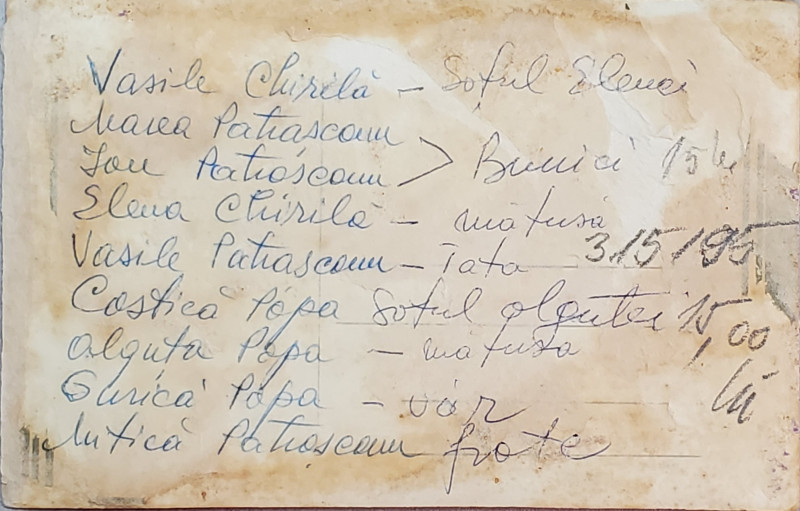 Vasile Chirilă - Soțul Elenei
Marea Patrascanu
Ion Patrășcanu > Bunici 15 lei
Elena Chirilă - mătușă
Vasile Patrascanu - Tata 3/5/95
Costică Popa Soțul Olguței 15,00
Olguța Popa - matusa lei
Gurică Popa - văr
Mitică Patrascanu frate